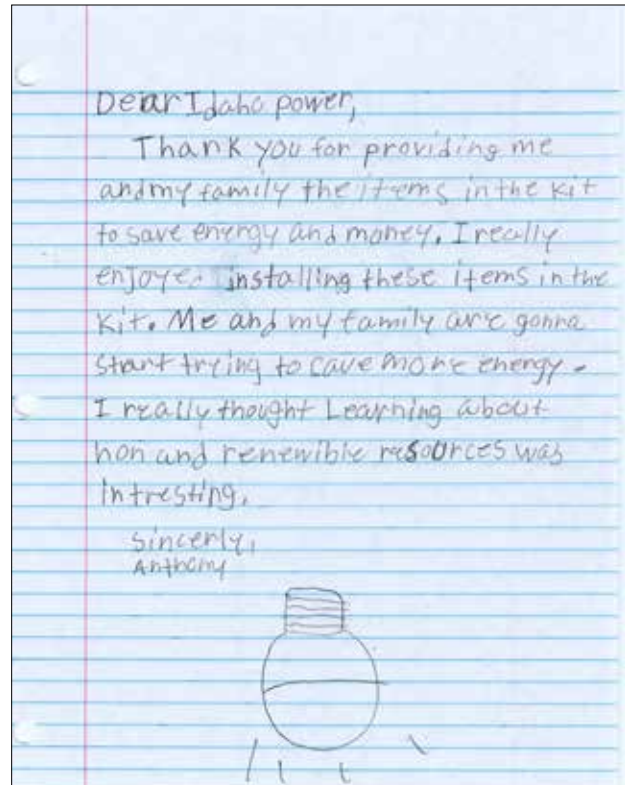 Dear Idaho power,
Thank you for providing me
and my family the items in the kit
to save energy and money. I really
enjoyed installing these items in the
kit. Me and my family are gonna
start trying to save more energy.
I really thought Learning about
non and renewible resources was
intresting.
Sincerly,
Anthony